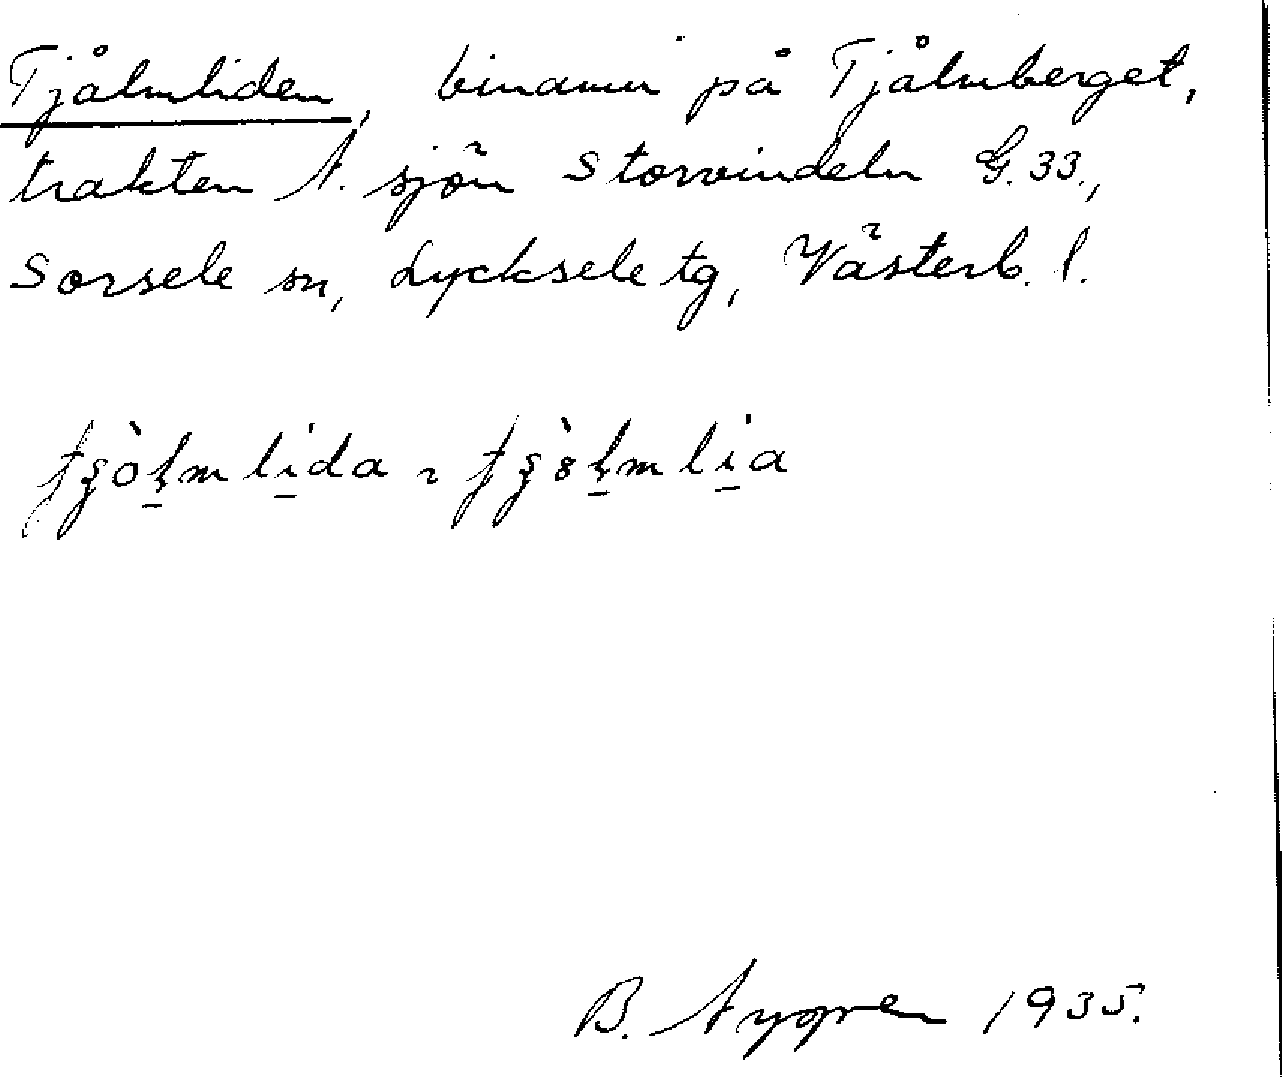 Tjålmliden, binamn på Tjålmberget,
trakten N. sjön Storvindeln G. 33.,
Sorsele sn, Lycksele tg, Västerb. l.
B. Nygren 1935.